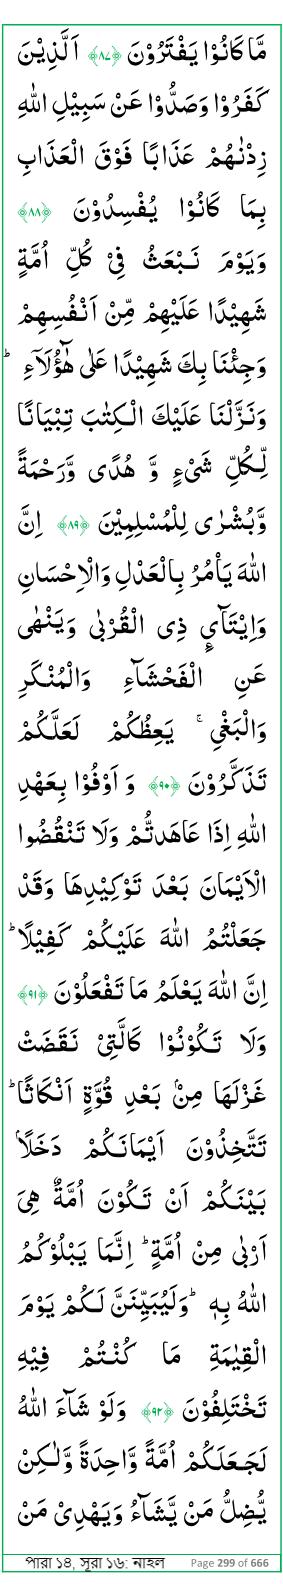 مَّا كَانُوْا يَفْتَرُوْنَ ﴿۸۷﴾ اَلَّذِيْنَ
كَفَرُوْا وَصَدُّوْا عَنْ سَبِيْلِ اللّٰهِ
زِدْنٰهُمْ عَذَابًا فَوْقَ الْعَذَابِ
بِمَا كَانُوْا يُفْسِدُوْنَ ﴿۸۸﴾
وَيَوْمَ نَـبْعَثُ فِىْ كُلِّ اُمَّةٍ
شَهِيْدًا عَلَيْهِمْ مِّنْ اَنْفُسِهِمْ
وَجِئْنَا بِكَ شَهِيْدًا عَلٰى هٰٓؤُلَاۤءِ‌ ؕ
وَنَزَّلْنَا عَلَيْكَ الْـكِتٰبَ تِبْيَانًا
لِّـكُلِّ شَىْءٍ وَّ هُدًى وَّرَحْمَةً
وَّبُشْرٰى لِلْمُسْلِمِيْنَ ﴿۸۹﴾ اِنَّ
اللّٰهَ يَاْمُرُ بِالْعَدْلِ وَالْاِحْسَانِ
وَاِيْتَآىِٕ ذِى الْقُرْبٰى وَيَنْهٰى
عَنِ الْفَحْشَاۤءِ وَالْمُنْكَرِ
وَالْبَغْىِ‌ ۚ يَعِظُكُمْ لَعَلَّكُمْ
تَذَكَّرُوْنَ ﴿۹۰﴾ وَ اَوْفُوْا بِعَهْدِ
اللّٰهِ اِذَا عَاهَدتُّمْ وَلَا تَنْقُضُوا
الْاَيْمَانَ بَعْدَ تَوْكِيْدِهَا وَقَدْ
جَعَلْتُمُ اللّٰهَ عَلَيْكُمْ كَفِيْلًا‌ ؕ
اِنَّ اللّٰهَ يَعْلَمُ مَا تَفْعَلُوْنَ ﴿۹۱﴾
وَلَا تَكُوْنُوْا كَالَّتِىْ نَقَضَتْ
غَزْلَهَا مِنْۢ بَعْدِ قُوَّةٍ اَنْكَاثًا ؕ
تَتَّخِذُوْنَ اَيْمَانَكُمْ دَخَلًاۢ
بَيْنَكُمْ اَنْ تَكُوْنَ اُمَّةٌ هِىَ
اَرْبٰى مِنْ اُمَّةٍ‌ ؕ اِنَّمَا يَبْلُوْكُمُ
اللّٰهُ بِهٖ‌ ؕ وَلَيُبَيِّنَنَّ لَـكُمْ يَوْمَ
الْقِيٰمَةِ مَا كُنْـتُمْ فِيْهِ
تَخْتَلِفُوْنَ ﴿۹۲﴾ وَلَوْ شَاۤءَ اللّٰهُ
لَجَـعَلَكُمْ اُمَّةً وَّاحِدَةً وَّلٰـكِنْ
يُّضِلُّ مَنْ يَّشَاۤءُ وَيَهْدِىْ مَنْ
পারা ১৪, সূরা ১৬: নাহল Page 299 of 666